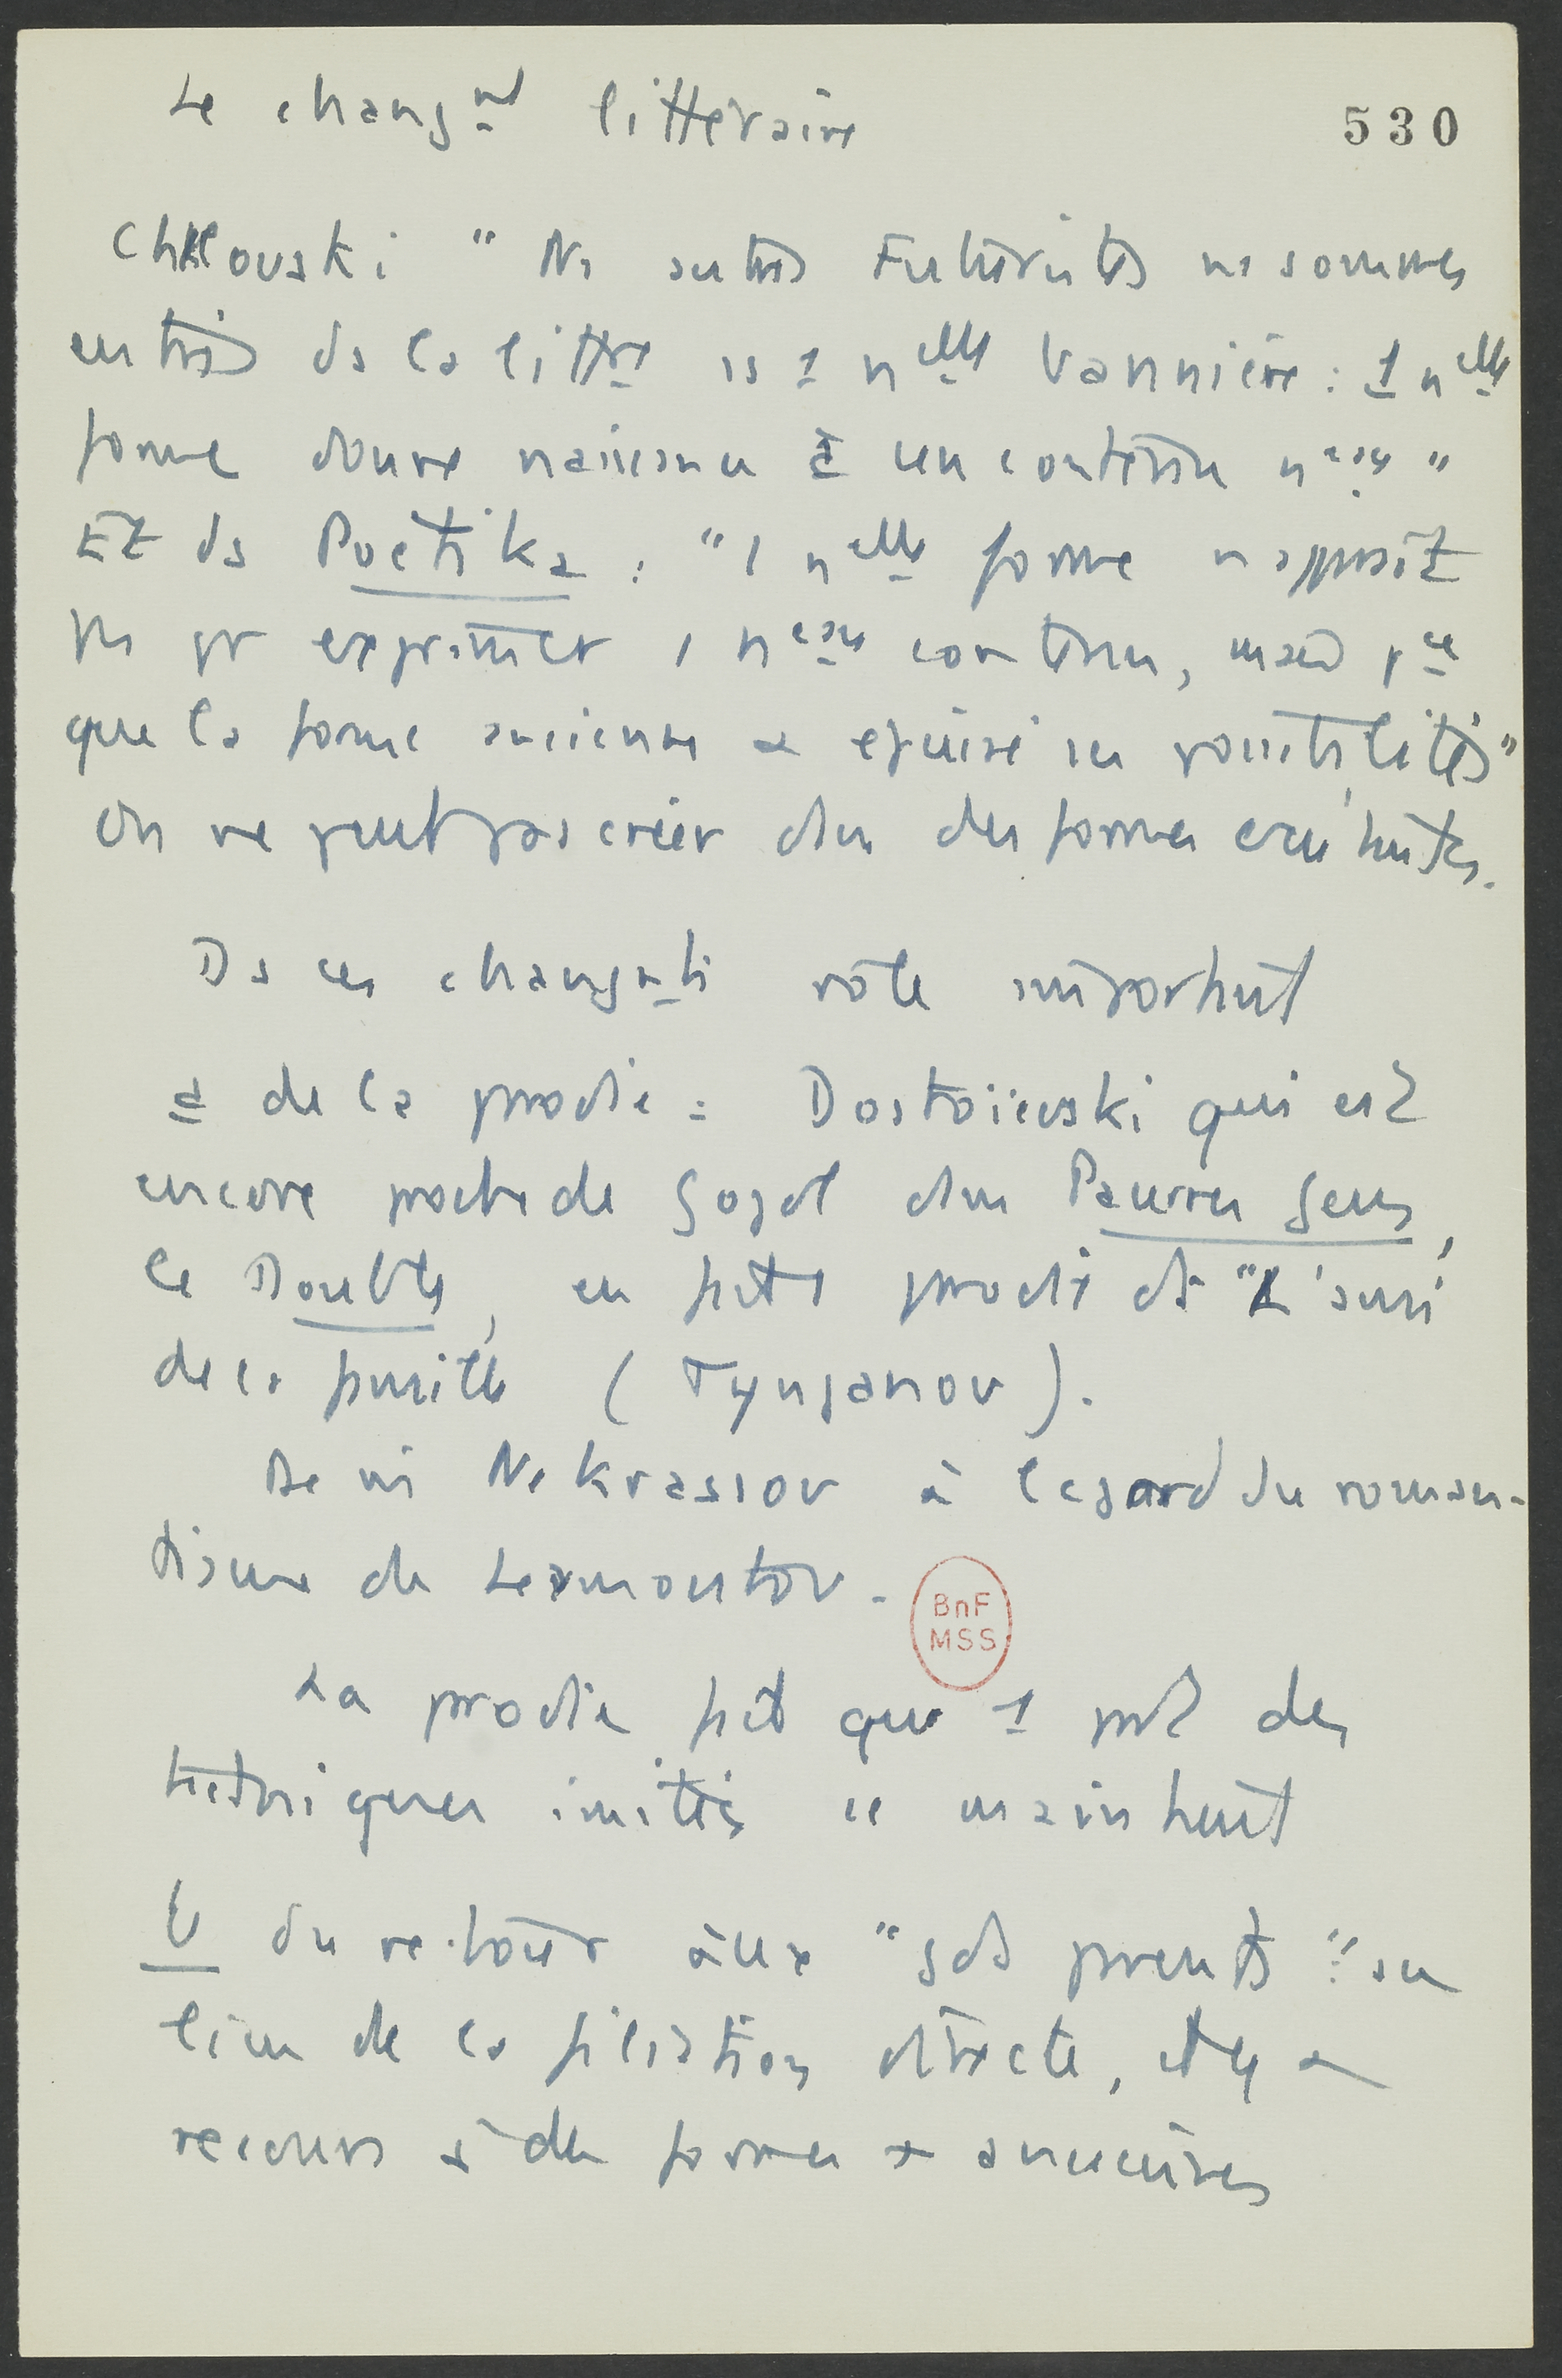 Le changnt littéraire
530
Chklovski " Ns autres Futuristes ns sommes
entrés ds la littre ss 1 nelle bannière : 1 nelle
forme donne naissance à un contenu neau "
Et ds Poetika : " 1 nelle forme n apparaît
pas pr exprimer 1 neau contenu, mais pce
que la forme ancienne a épuisé ses possibilités "
On ne peut pas créer dans des formes existantes.
Ds ces changnts rôle important
de la prodie : Dostoïevski qui est
encore proche de Gogol dans Pauvres Gens,
le Double, en fait 1 prodie ds "L'ami
de la famille (Tynjanov).
De m Nekrassov à l egard du roman-
tisme de Lermontov.
BnF
MSS
La prodie fait que 1 part des
techniques imitées se maintient
du retour aux "gds prents" au
lieu de la filiation directe, il y a
recours à des formes + anciennes